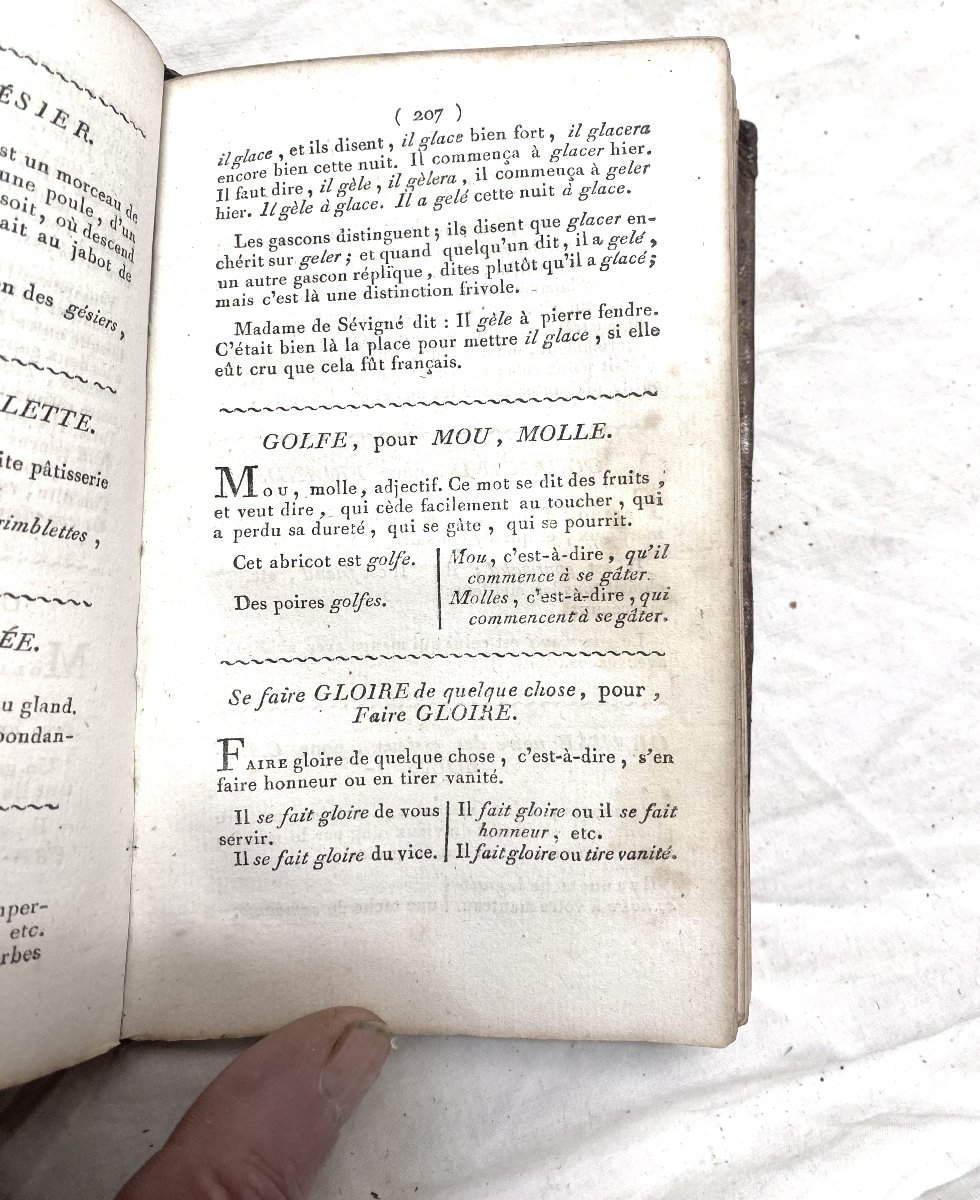 ÉSIER.
st un morceau de
une poule, d'un
soit, où descend
ait au jabot de
n des gésiers,
LETTE.
ite pâtisserie
rimblettes,
ÉE.
u gland.
bondan-
per-
etc.
rbes
( 207 )
il glace, et ils disent, il glace bien fort, il glacera
encore bien cette nuit. Il commença à glacer hier.
Il faut dire, il gèle, il gèlera, il commença à geler
hier. Il gèle à glace. Il a gelé cette nuit à glace.
Les gascons distinguent; ils disent que glacer en-
chérit sur geler; et quand quelqu'un dit, il a gelé,
un autre gascon réplique, dites plutôt qu'il a glacé;
mais c'est là une distinction frivole.
Madame de Sévigné dit : Il gèle à pierre fendre.
C'était bien là la place pour mettre il glace, si elle
eût cru que cela fût français.
GOLFE, pour MOU, MOLLE.
Mou, molle, adjectif. Ce mot se dit des fruits,
et veut dire, qui cède facilement au toucher, qui
a perdu sa dureté, qui se gâte, qui se pourrit.
Cet abricot est golfe. | Mou, c'est-à-dire, qu'il
commence à se gâter.
Des poires golfes. | Molles, c'est-à-dire, qui
commencent à se gâter.
Se faire GLOIRE de quelque chose, pour,
Faire GLOIRE.
FAIRE gloire de quelque chose, c'est-à-dire, s'en
faire honneur ou en tirer vanité.
Il se fait gloire de vous | Il fait gloire ou il se fait
servir. | honneur, etc.
Il se fait gloire du vice. | Il fait gloire ou tire vanité.